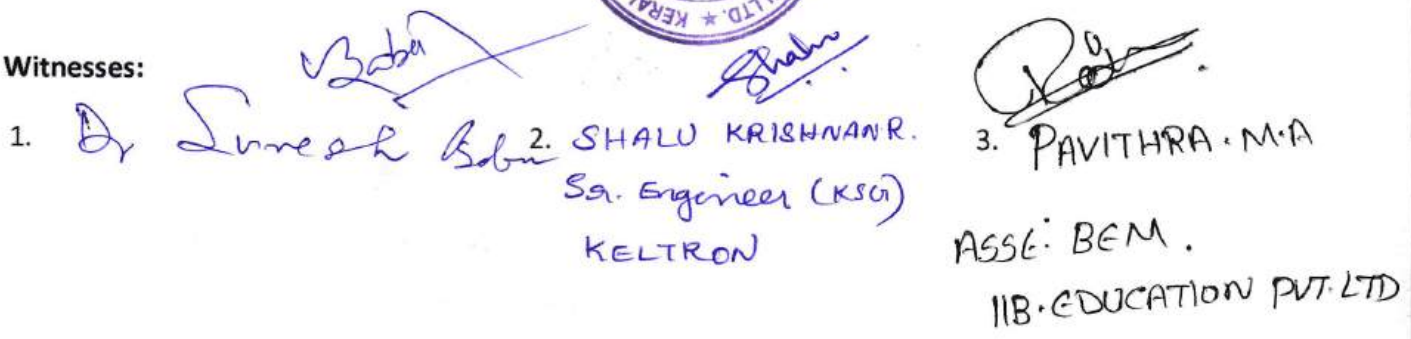 LTD. ★ KERAL
Babu
Shalu
Witnesses:
1. Dr Suresh Babu
2. SHALU KRISHNAN R.
Sr. Engineer (KSG)
KELTRON
3. PAVITHRA. M.A
ASSE: BEM.
IIB. EDUCATION PVT. LTD